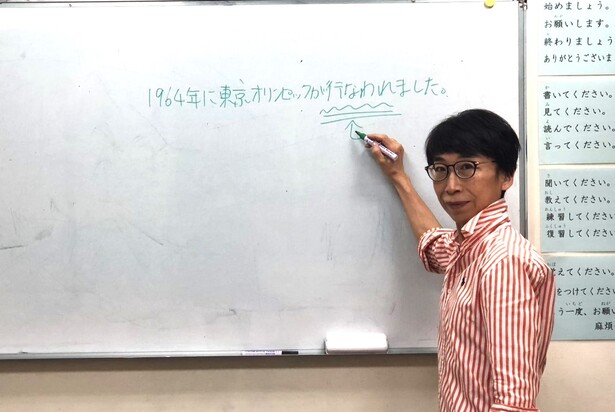 1964年に東京オリンピックが行なわれました。
始めましょう。
お願いします。
終わりましょう
ありがとうございま
書いてください。
見てください。
読んでください。
言ってください。
聞いてください。
教えてください。
練習してください
復習してください
覚えてください。
をつけてください
う一度、お願い
麻煩